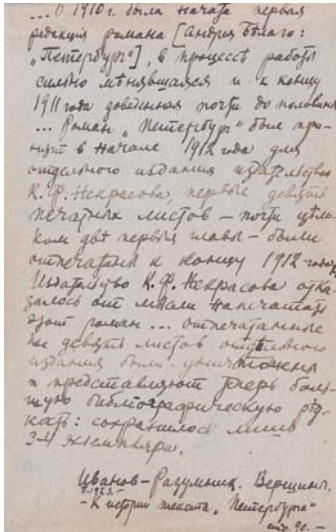 ... С 1910 г. была начата первая
редакция романа [Андрея Белого:
„Петербург“], в процессе работы
сильно мѣнявшаяся и к концу
1911 года доведенная почти до половины
... Роман „Петербург“ был при-
нят в начале 1912 года для
отдельного издания издательством
К. Ф. Некрасова, первые девять
печатных листов – почти цѣли-
ком двѣ первых главы – были
отпечатаны к концу 1912 года.
Издательство К. Ф. Некрасова отка-
залось от мысли напечатать
этот роман ... отпечатанные
же девять листов отдельного
издания были уничтожены
и представляют теперь боль-
шую библиографическую рѣд-
кость: сохранилось лишь
3-4 экземпляра.
Иванов-Разумник. Вершины.
1923.
– К истории текста „Петербурга“
стр. 90. –